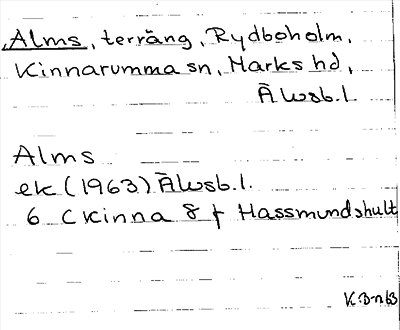 Alms, terräng, Rydboholm,
Kinnarumma sn, Marks hd,
Älvsb.l.
Alms
ek (1963) Älvsb.l.
6 C Kinna 8 f Hassmundshult